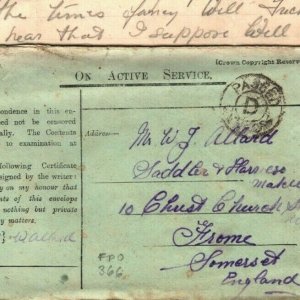 the times Fancy Will
hear that I suppose Will
(Crown Copyright Reserv
ON ACTIVE SERVICE.
PASSED
D
pondence in this en-
ed not be censored
ally. The Contents
to examination at
following Certificate
signed by the writer:
y on my honour that
nts of this envelope
nothing but private
y matters.
Allard
Address—
Mr W J Allard
Saddler & Harness
Maker
10 Christ Church S
Frome
Somerset
England
FPO
366